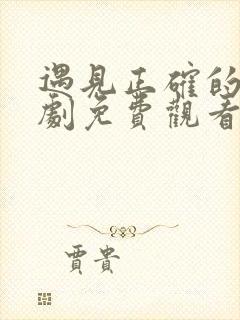 遇見正確的
劇免費觀看
賈貴